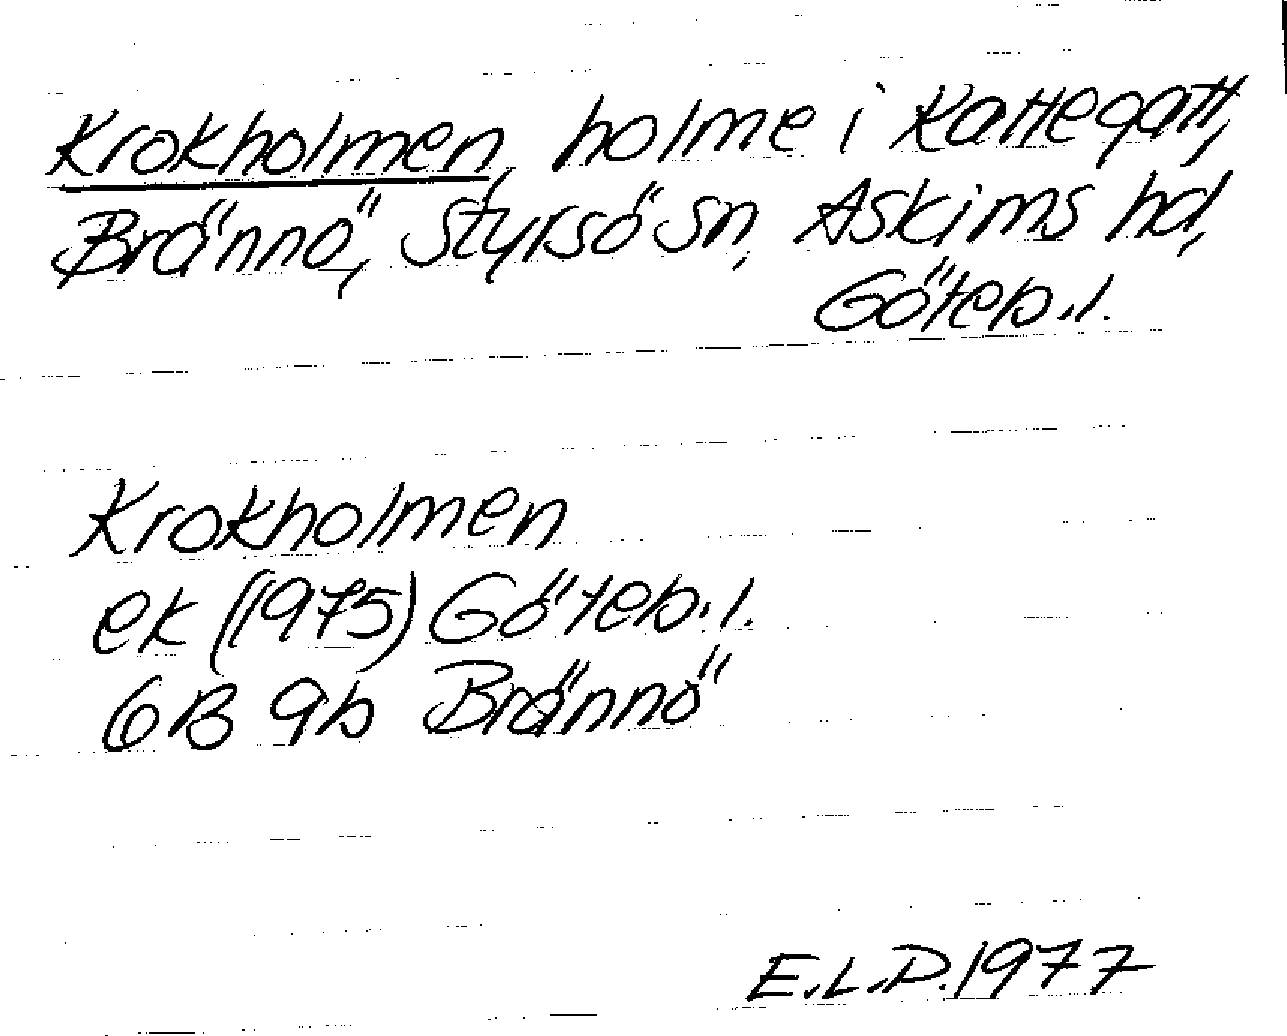 Krokholmen, holme i Kattegatt,
Brännö, Styrsö sn, Askims hd,
Göteb.l.
Krokholmen
ek (1975) Göteb.l.
6B 9b Brännö
E.L.D. 1977